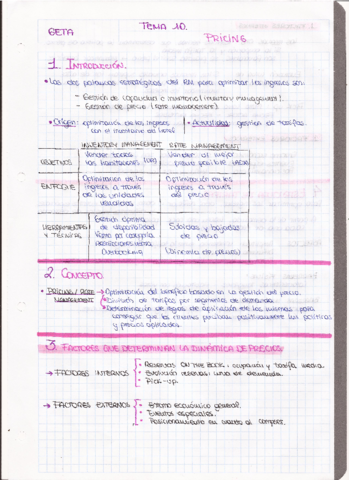 BETA
TEMA 10.
PRICING
1. INTRODUCCIÓN.
• Las dos palancas estratégicas del RM para optimizar los ingresos son:
- Gestión de capacidad o inventario (inventory management).
- Gestión de precio (rate management)
• Origen: optimización de los ingresos con el inventario del hotel
• Actualidad: gestión de tarifas.
INVENTORY MANAGEMENT RATE MANAGEMENT
OBJETIVOS
Vender todas las habitaciones
Vender al mejor precio posible
ENFOQUE
Optimización de los ingresos a través de las unidades vendidas
Optimización de los ingresos a través del precio
HERRAMIENTAS Y TÉCNICAS
Gestión óptima de disponibilidad
Overbooking
Subidas y bajadas de precio
(Dinámica de precios)
2. CONCEPTO.
• PRICING / RATE MANAGEMENT
→ Optimización del beneficio basado en la gestión del precio.
de tarifas por segmentos de demanda.
Determinación de reglas de aplicación de las mismas para
conseguir que los clientes perciban positivamente las políticas
y precios aplicados.
3. FACTORES QUE DETERMINAN LA DINÁMICA DE PRECIOS
→ FACTORES INTERNOS
• Reservas ON THE BOOK: ocupación y tarifa media.
• Evolución reservas: curva de demanda.
• Pick-up.
→ FACTORES EXTERNOS
• Entorno económico general.
• Eventos especiales.
• Posicionamiento en cuanto al compset.